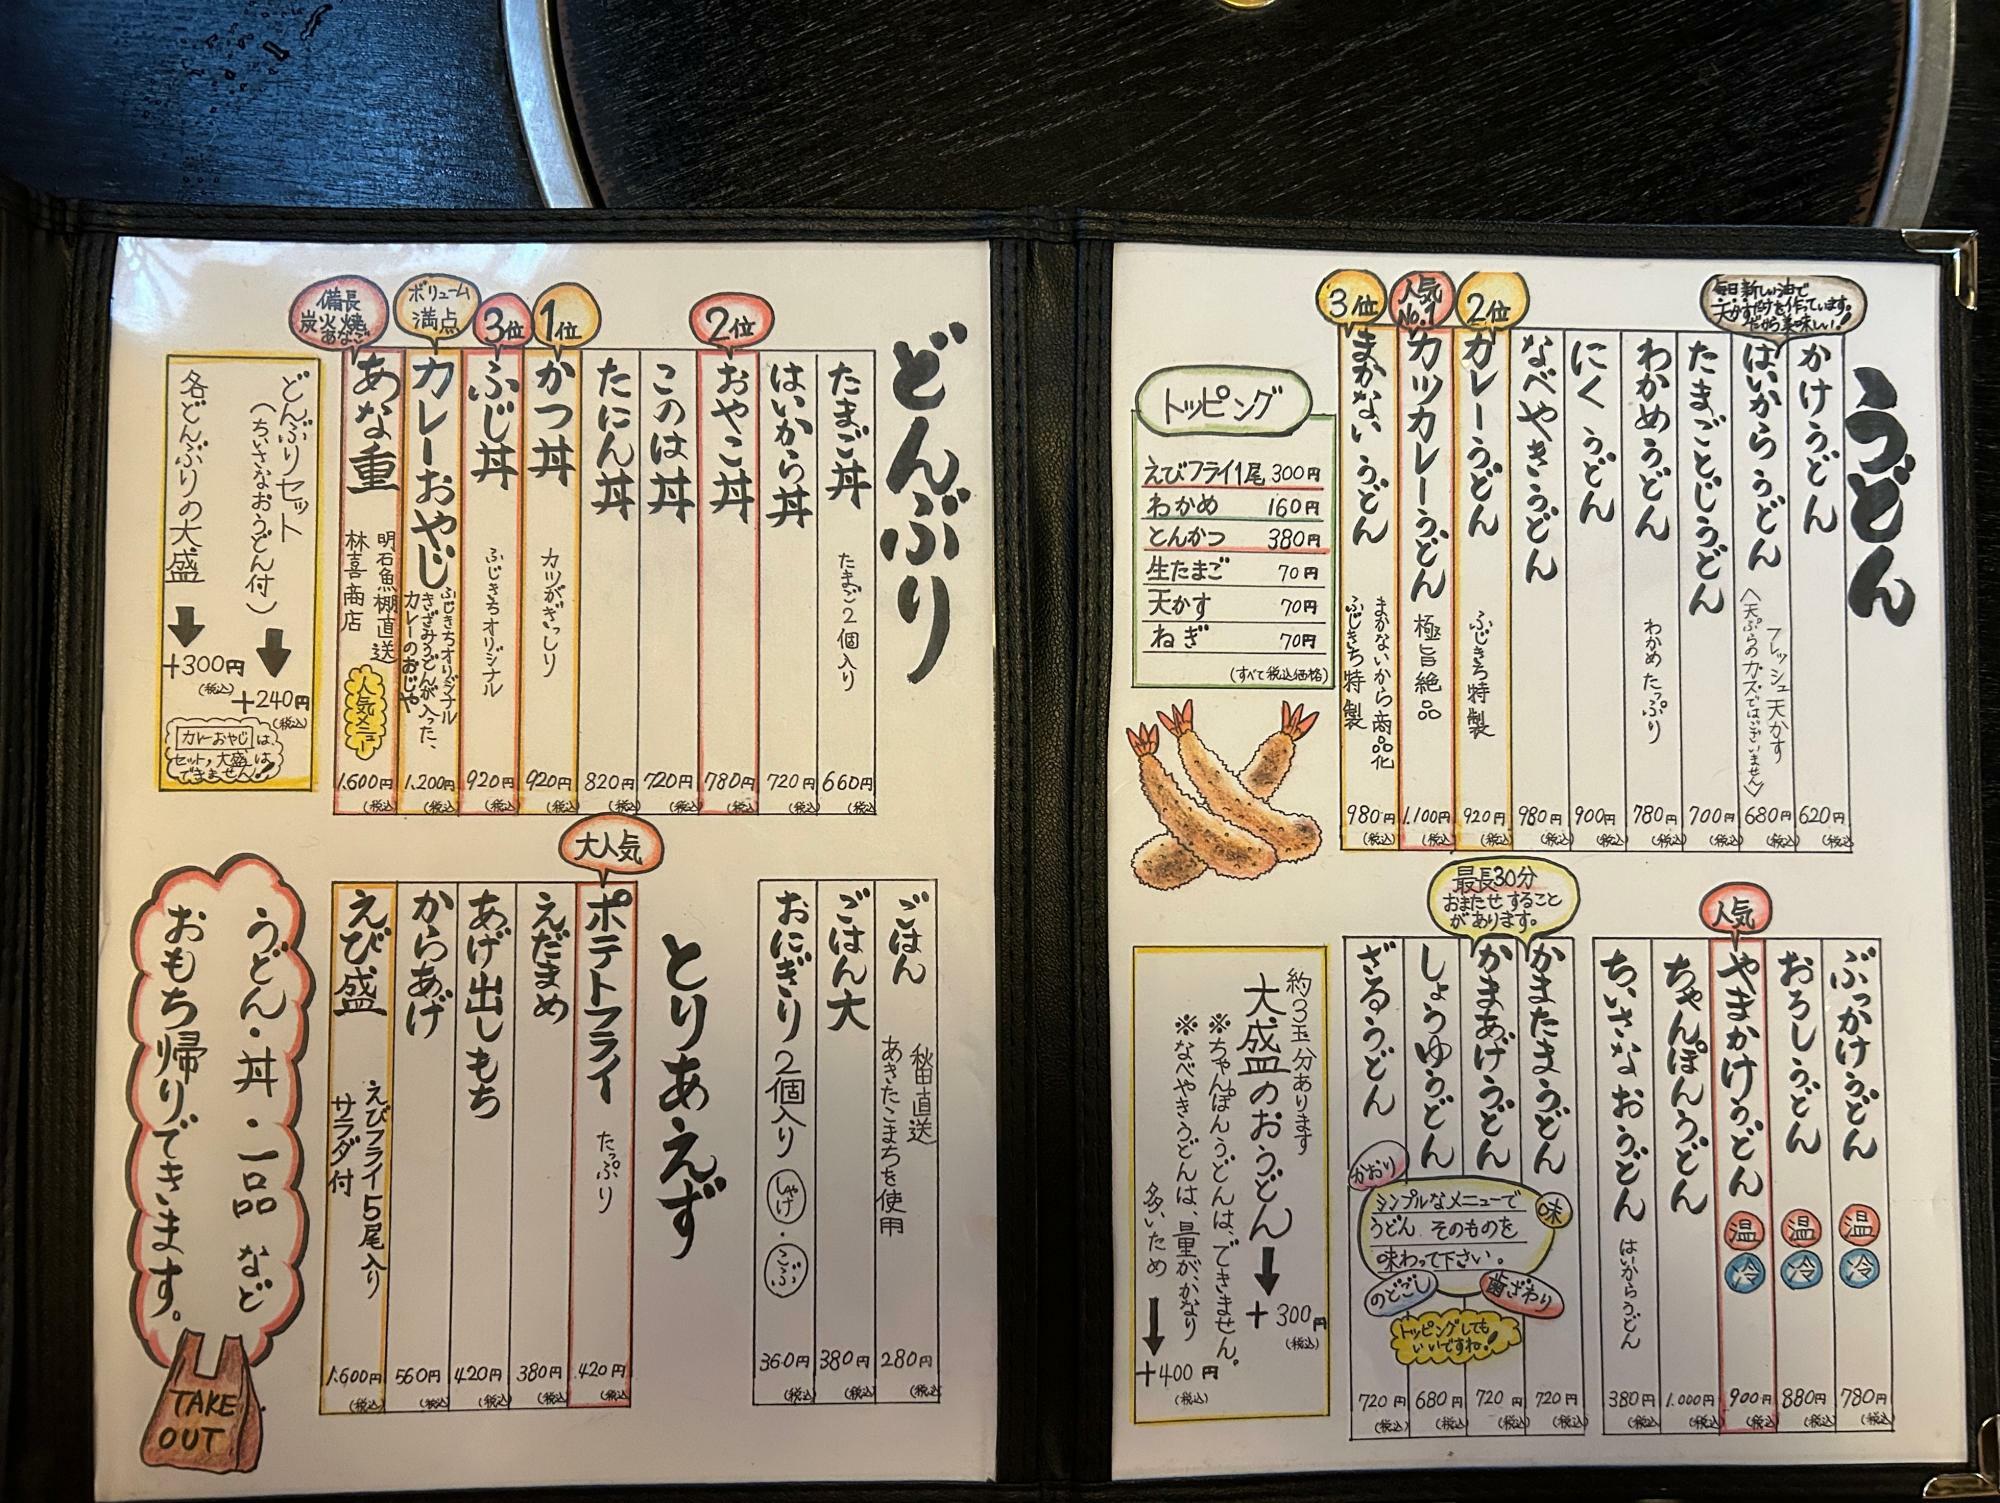 うどん
毎日新しい油で
天かすだけを作っています。
だから美味しい!!
かけうどん
620円
(税込)
はいからうどん
フレッシュ天かす
〈天ぷらのカズではございません〉
680円
(税込)
たまごとじうどん
700円
(税込)
わかめうどん
わかめたっぷり
780円
(税込)
にくうどん
900円
(税込)
なべやきうどん
980円
(税込)
2位
カレーうどん
ふじきち特製
920円
(税込)
人気
No.1
カツカレーうどん
極旨絶品
1.100円
(税込)
3位
まかないうどん
まかないから商品化
ふじきち特製
980円
(税込)
トッピング
えびフライ1尾 300円
わかめ 160円
とんかつ 380円
生たまご 70円
天かす 70円
ねぎ 70円
(すべて税込価格)
ぶっかけうどん
温
冷
780円
(税込)
おろしうどん
温
冷
880円
(税込)
人気
やまかけうどん
温
冷
900円
(税込)
ちゃんぽんうどん
1.000円
(税込)
ちいさなおうどん
はいからうどん
380円
(税込)
最長30分
おまたせすること
があります。
かまたまうどん
720円
(税込)
かまあげうどん
720円
(税込)
しょうゆうどん
680円
(税込)
ざるうどん
720円
(税込)
かおり
味
シンプルなメニューで
うどんそのものを
味わって下さい。
のどごし
歯ざわり
トッピングしても
いいですね!
約3玉分あります
大盛のおうどん
+300円
(税込)
※ちゃんぽんうどんは、できません。
※なべやきうどんは、量が、かなり
多いため
+400円
(税込)
どんぶり
たまご丼
たまご2個入り
660円
(税込)
はいから丼
720円
(税込)
2位
おやこ丼
780円
(税込)
このは丼
720円
(税込)
たにん丼
820円
(税込)
1位
かつ丼
カツがぎっしり
920円
(税込)
3位
ふじ丼
ふじきちオリジナル
920円
(税込)
ボリューム
満点
カレーおやじ
ふじきちオリジナル
きざみうどんが入った、
カレーのおじや
1.200円
(税込)
備長
炭火焼
あなご
あな重
明石魚棚直送
林喜商店
人気メニュー
1.600円
(税込)
どんぶりセット
(ちいさなおうどん付)
+240円
(税込)
各どんぶりの大盛
+300円
(税込)
カレーおやじは、
セット、大盛は
できません!!
ごはん
秋田直送
あきたこまちを使用
280円
(税込)
ごはん大
380円
(税込)
おにぎり2個入り
しゃけ・こぶ
360円
(税込)
とりあえず
大人気
ポテトフライ
たっぷり
420円
(税込)
えだまめ
380円
(税込)
あげ出しもち
420円
(税込)
からあげ
560円
(税込)
えび盛
えびフライ5尾入り
サラダ付
1.600円
(税込)
うどん・丼・一品など
おもち帰りできます。
TAKE
OUT